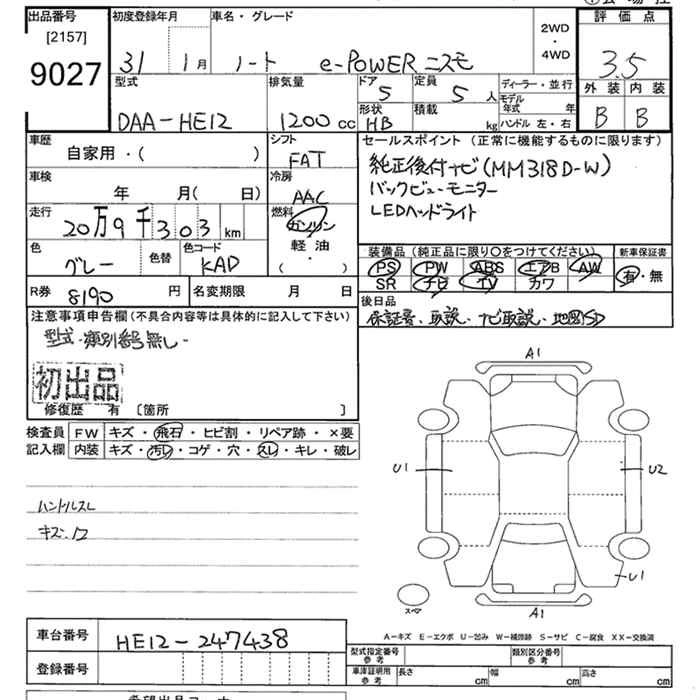 出品番号 初度登録年月 車名・グレード 2WD・4WD 評価点
[2157]
9027 31 1月 ノート e-POWER ニスモ 3.5
型式 排気量 ドア 5 定員 5人 ディーラー・並行 外装 内装
モデル年式 年
DAA-HE12 1200cc 形状 HB 積載 kg ハンドル 左・右 B B
車歴 自家用・( ) シフト FAT セールスポイント (正常に機能するものに限ります)
純正後付ナビ(MM318D-W)
車検 年 月( 日) 冷房 AAC バックビューモニター
走行 20万9千303km 燃料 ガソリン LEDヘッドライト
軽油・( )
色 グレー 色替 色コード KAD 装備品 (純正品に限り〇をつけてください) 新車保証書
PS PW ABS エアB AW 有・無
SR ナビ TV カワ
R券 8190円 名変期限 月 日 後日品
保証書、取説、ナビ取説、地図SD
注意事項申告欄(不具合内容等は具体的に記入して下さい)
型式・類別番号無し-
初出品
修復歴 有 [箇所 ]
A1
検査員記入欄 FW キズ・飛石・ヒビ割・リペア跡・×要
内装 キズ・汚レ・コゲ・穴・スレ・キレ・破レ
U1 U2
ハンドルスレ
キズ・ワ
U1
スペア A1
A-キズ E-エクボ U-凹み W-補修跡 S-サビ C-腐食 XX-交換済
車台番号 HE12-247438
型式指定番号 参考 類別区分番号 参考
登録番号 車庫証明用 参考 長さ cm 幅 cm 高さ cm